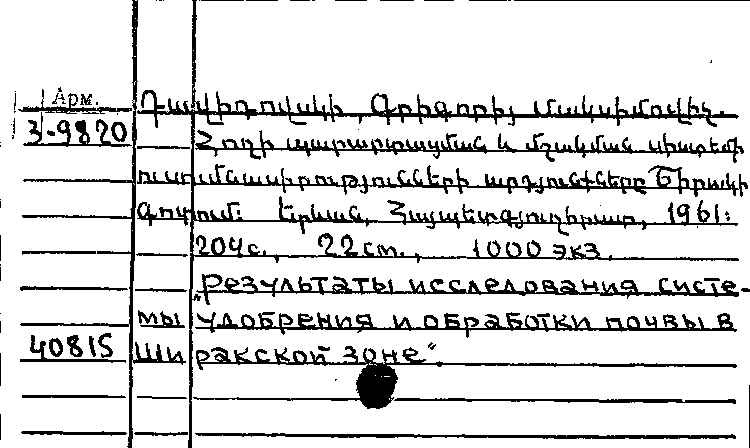 Арм.
Դավիդովսկի, Գրիգորիյ Մակսիմովիչ.
3-9820
Հողի պարարտացման և մշակման սիստեմի
ուսումնասիրությունների արդյունքները Շիրակի
գոտում: Երևան, Հայպետգյուղհրատ, 1961:
204с., 22см., 1000 экз.
„Результаты исследования систе-
мы удобрения и обработки почвы в
40815
Ширакской зоне“.